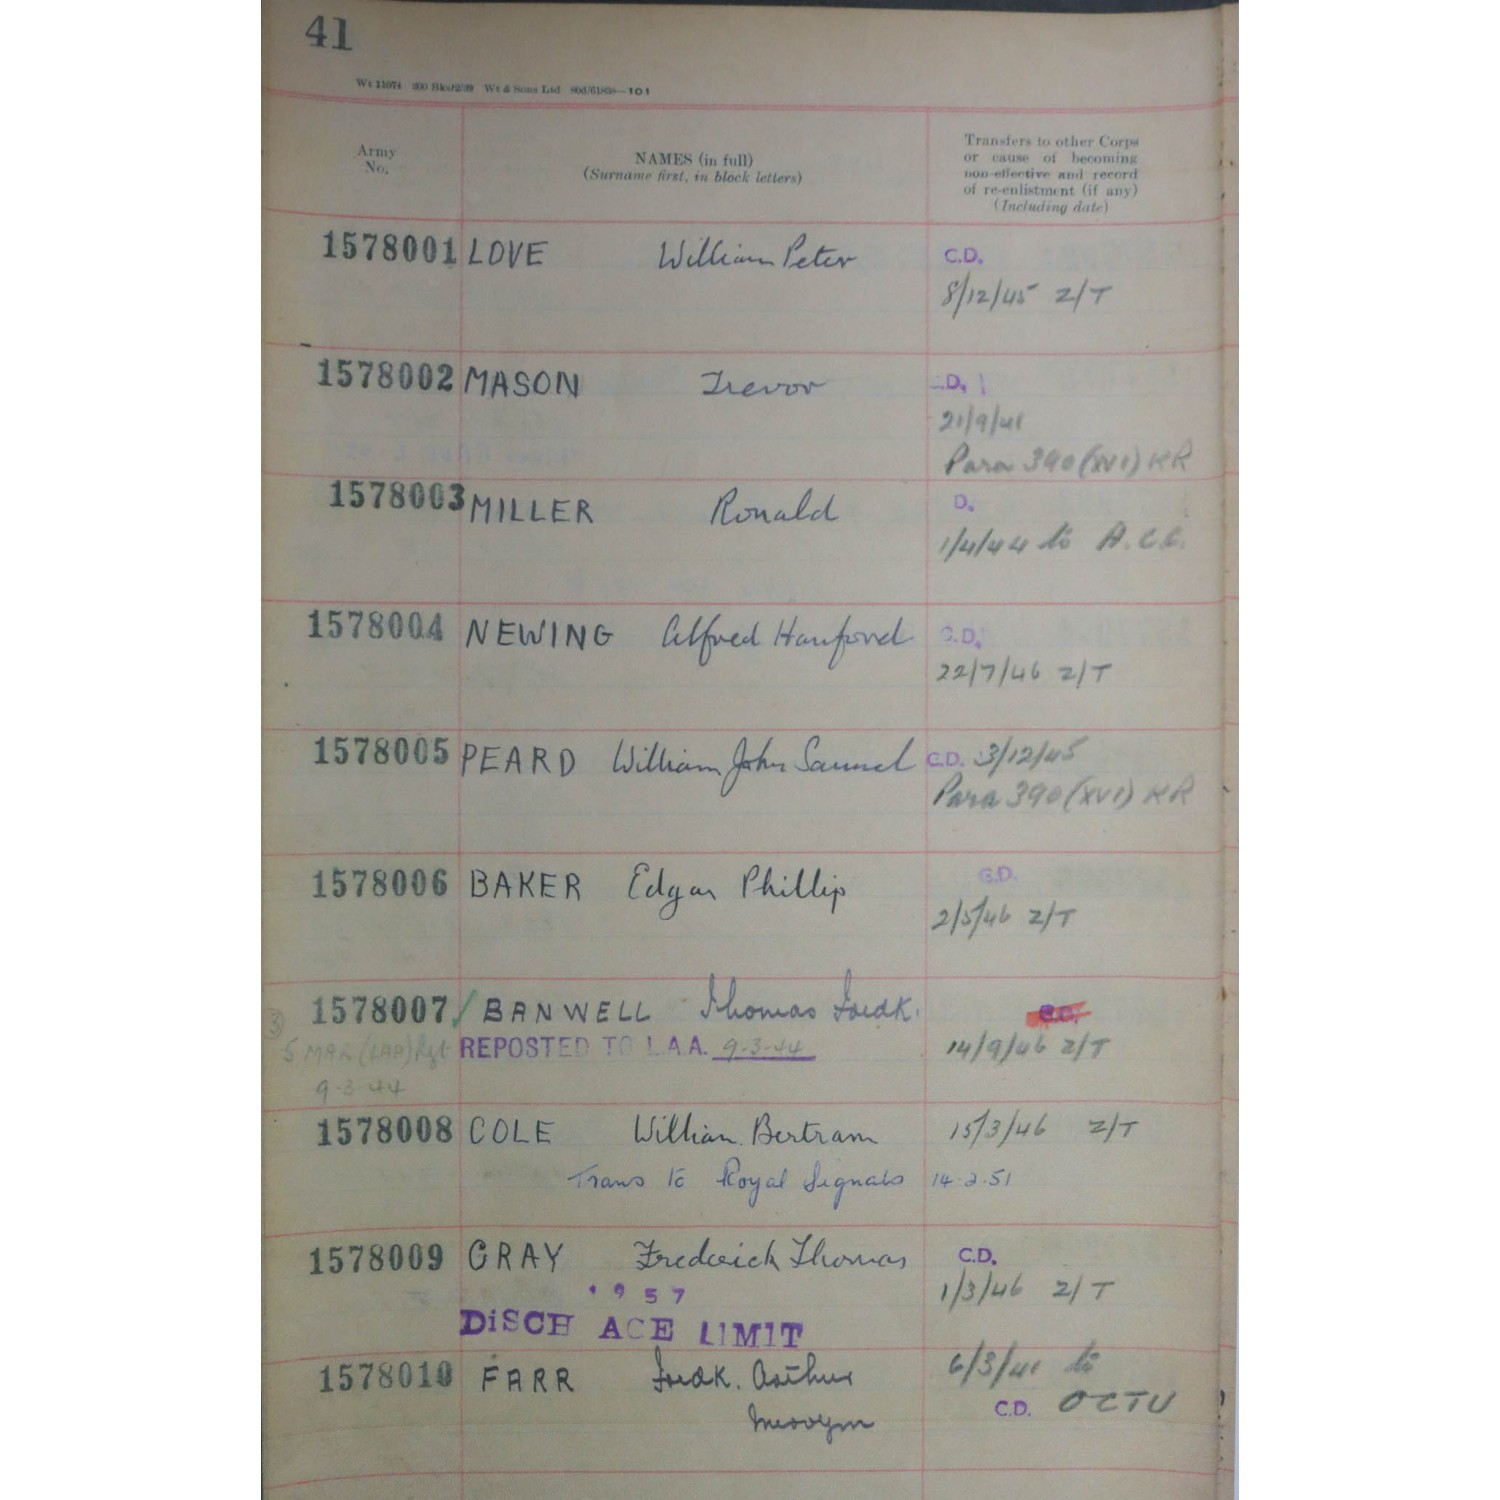 41
Wt & Sons Ltd
Army No.
NAMES (in full)
(Surname first, in block letters)
Transfers to other Corps
or cause of becoming
non-effective and record
of re-enlistment (if any)
(Including date)
1578001 LOVE William Peter C.D.
8/12/45 Z/T
1578002 MASON Trevor .D.
21/9/41
Para 390 (XVI) KR
1578003 MILLER Ronald D.
1/4/44 to A.C.C.
1578004 NEWING Alfred Hanford C.D.
22/7/46 Z/T
1578005 PEARD William John Samuel C.D. 3/12/45
Para 390 (XVI) KR
1578006 BAKER Edgar Phillip C.D.
2/5/46 Z/T
1578007 BANWELL Thomas Fredk. C.D.
5 MAR (LAA) Rgt REPOSTED TO L.A.A. 9-3-44 14/9/46 Z/T
9-3-44
1578008 COLE William Bertram 15/3/46 Z/T
Trans to Royal Signals 14.2.51
1578009 GRAY Frederick Thomas C.D.
1957 1/3/46 Z/T
DISCH AGE LIMIT
1578010 FARR Fredk. Arthur 6/3/41 to
Mervyn C.D. OCTU